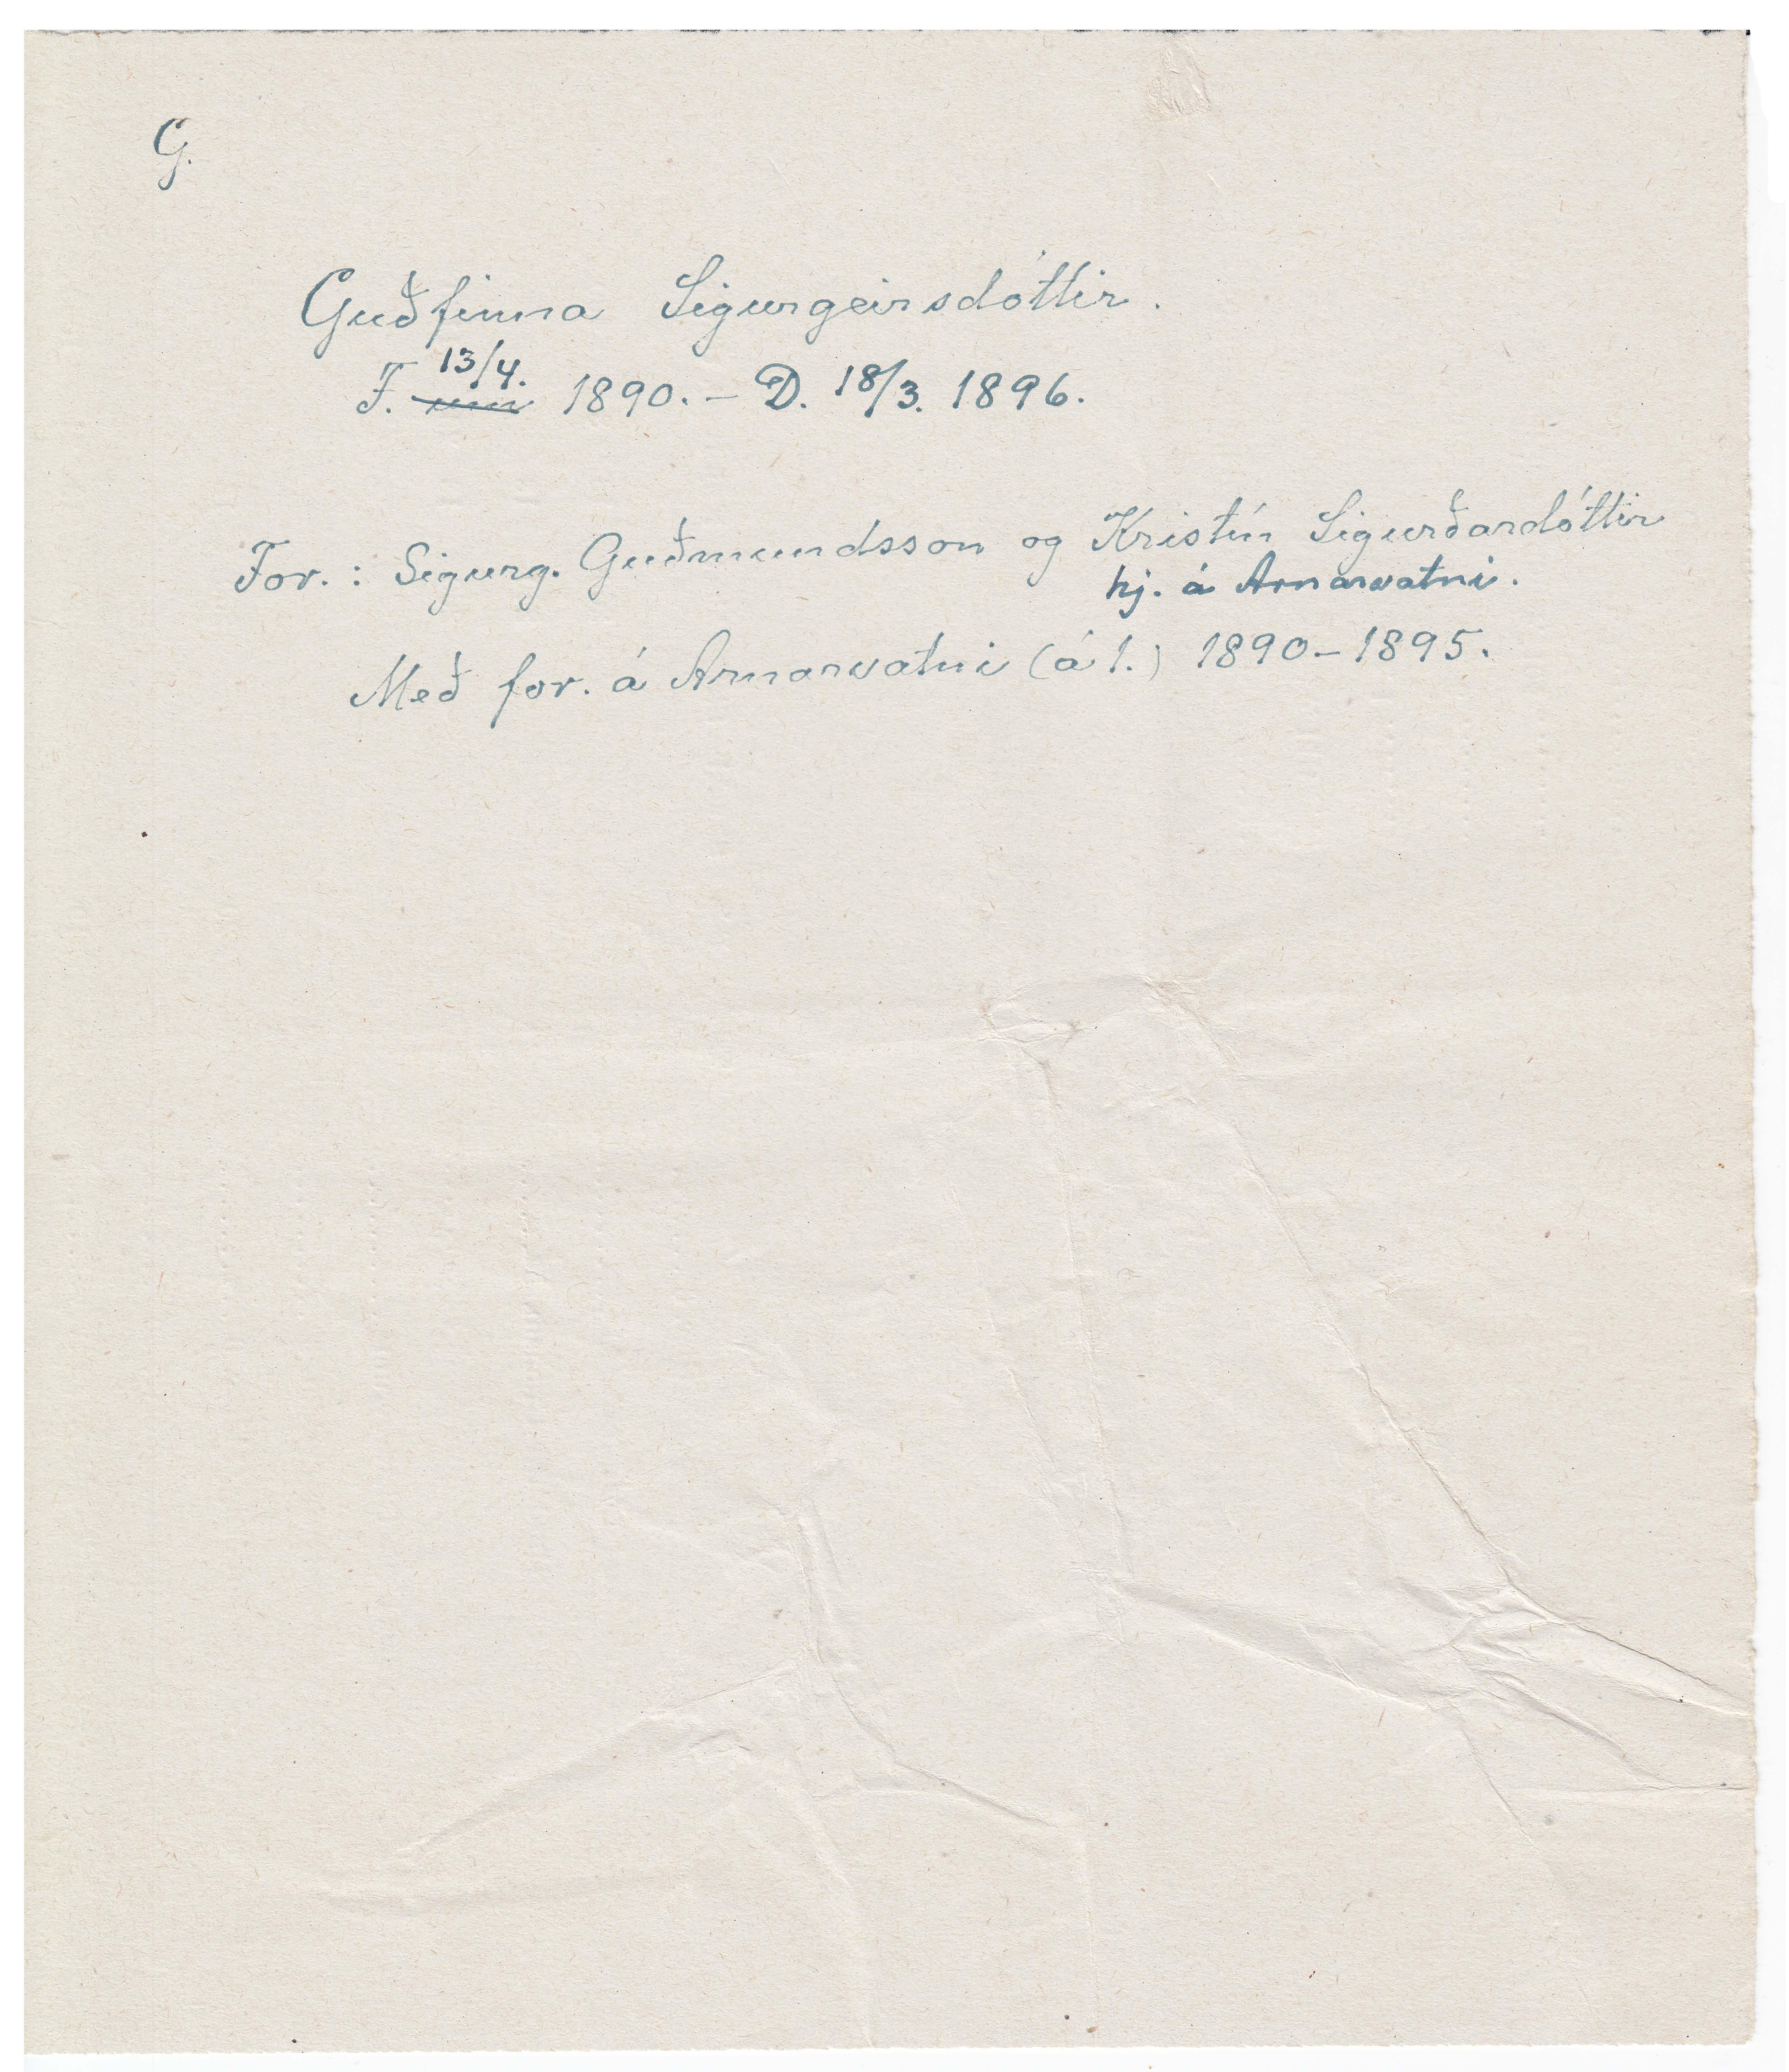 G.
Guðfinna Sigurgeirsdóttir.
13/4.
F. um 1890. – D. 18/3. 1896.
For.: Sigurg. Guðmundsson og Kristín Sigurðardóttir
hj. á Arnarvatni.
Með for. á Arnarvatni (á l.) 1890–1895.